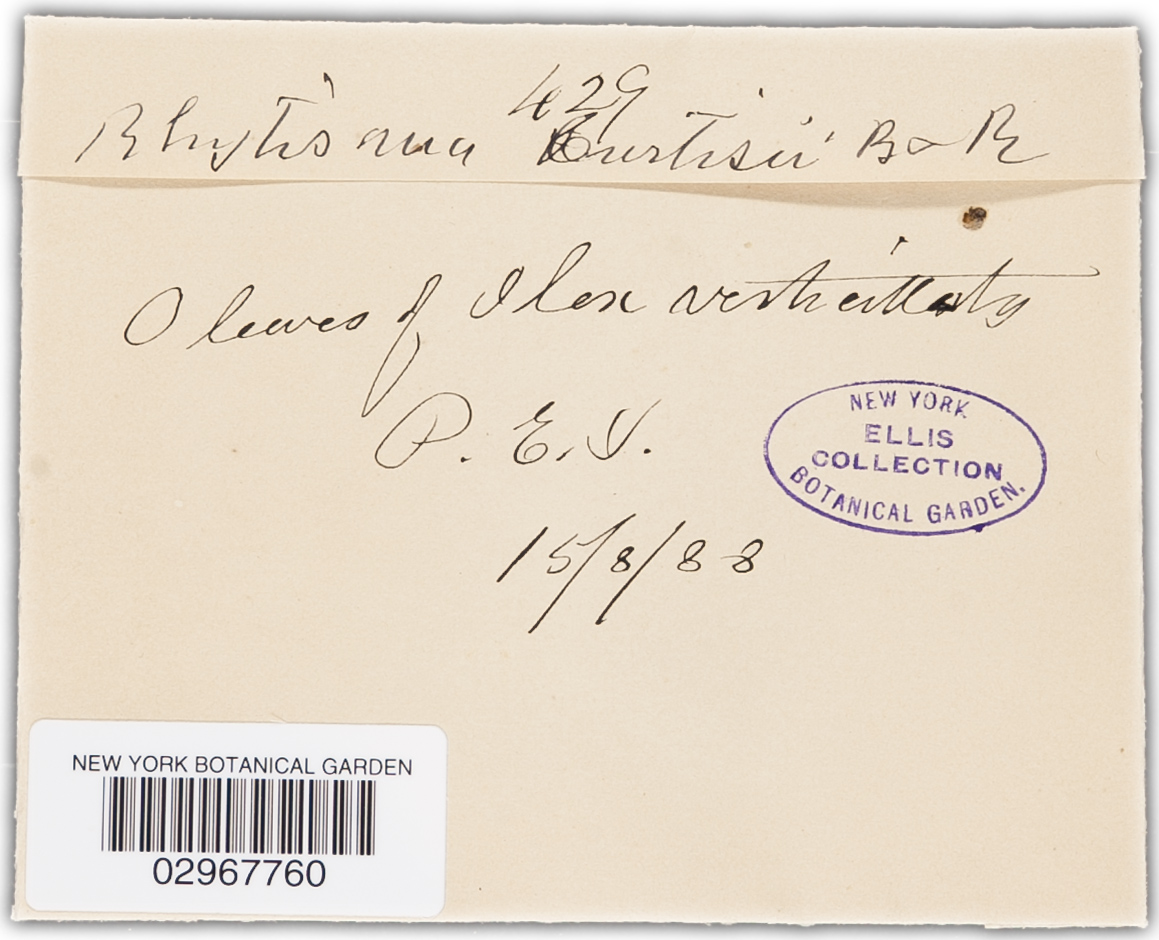 429
Rhytisma Curtisii B & R
O leaves of Ilex verticillata
P. E. I.
15/8/88
NEW YORK
ELLIS
COLLECTION
BOTANICAL GARDEN.
NEW YORK BOTANICAL GARDEN
02967760